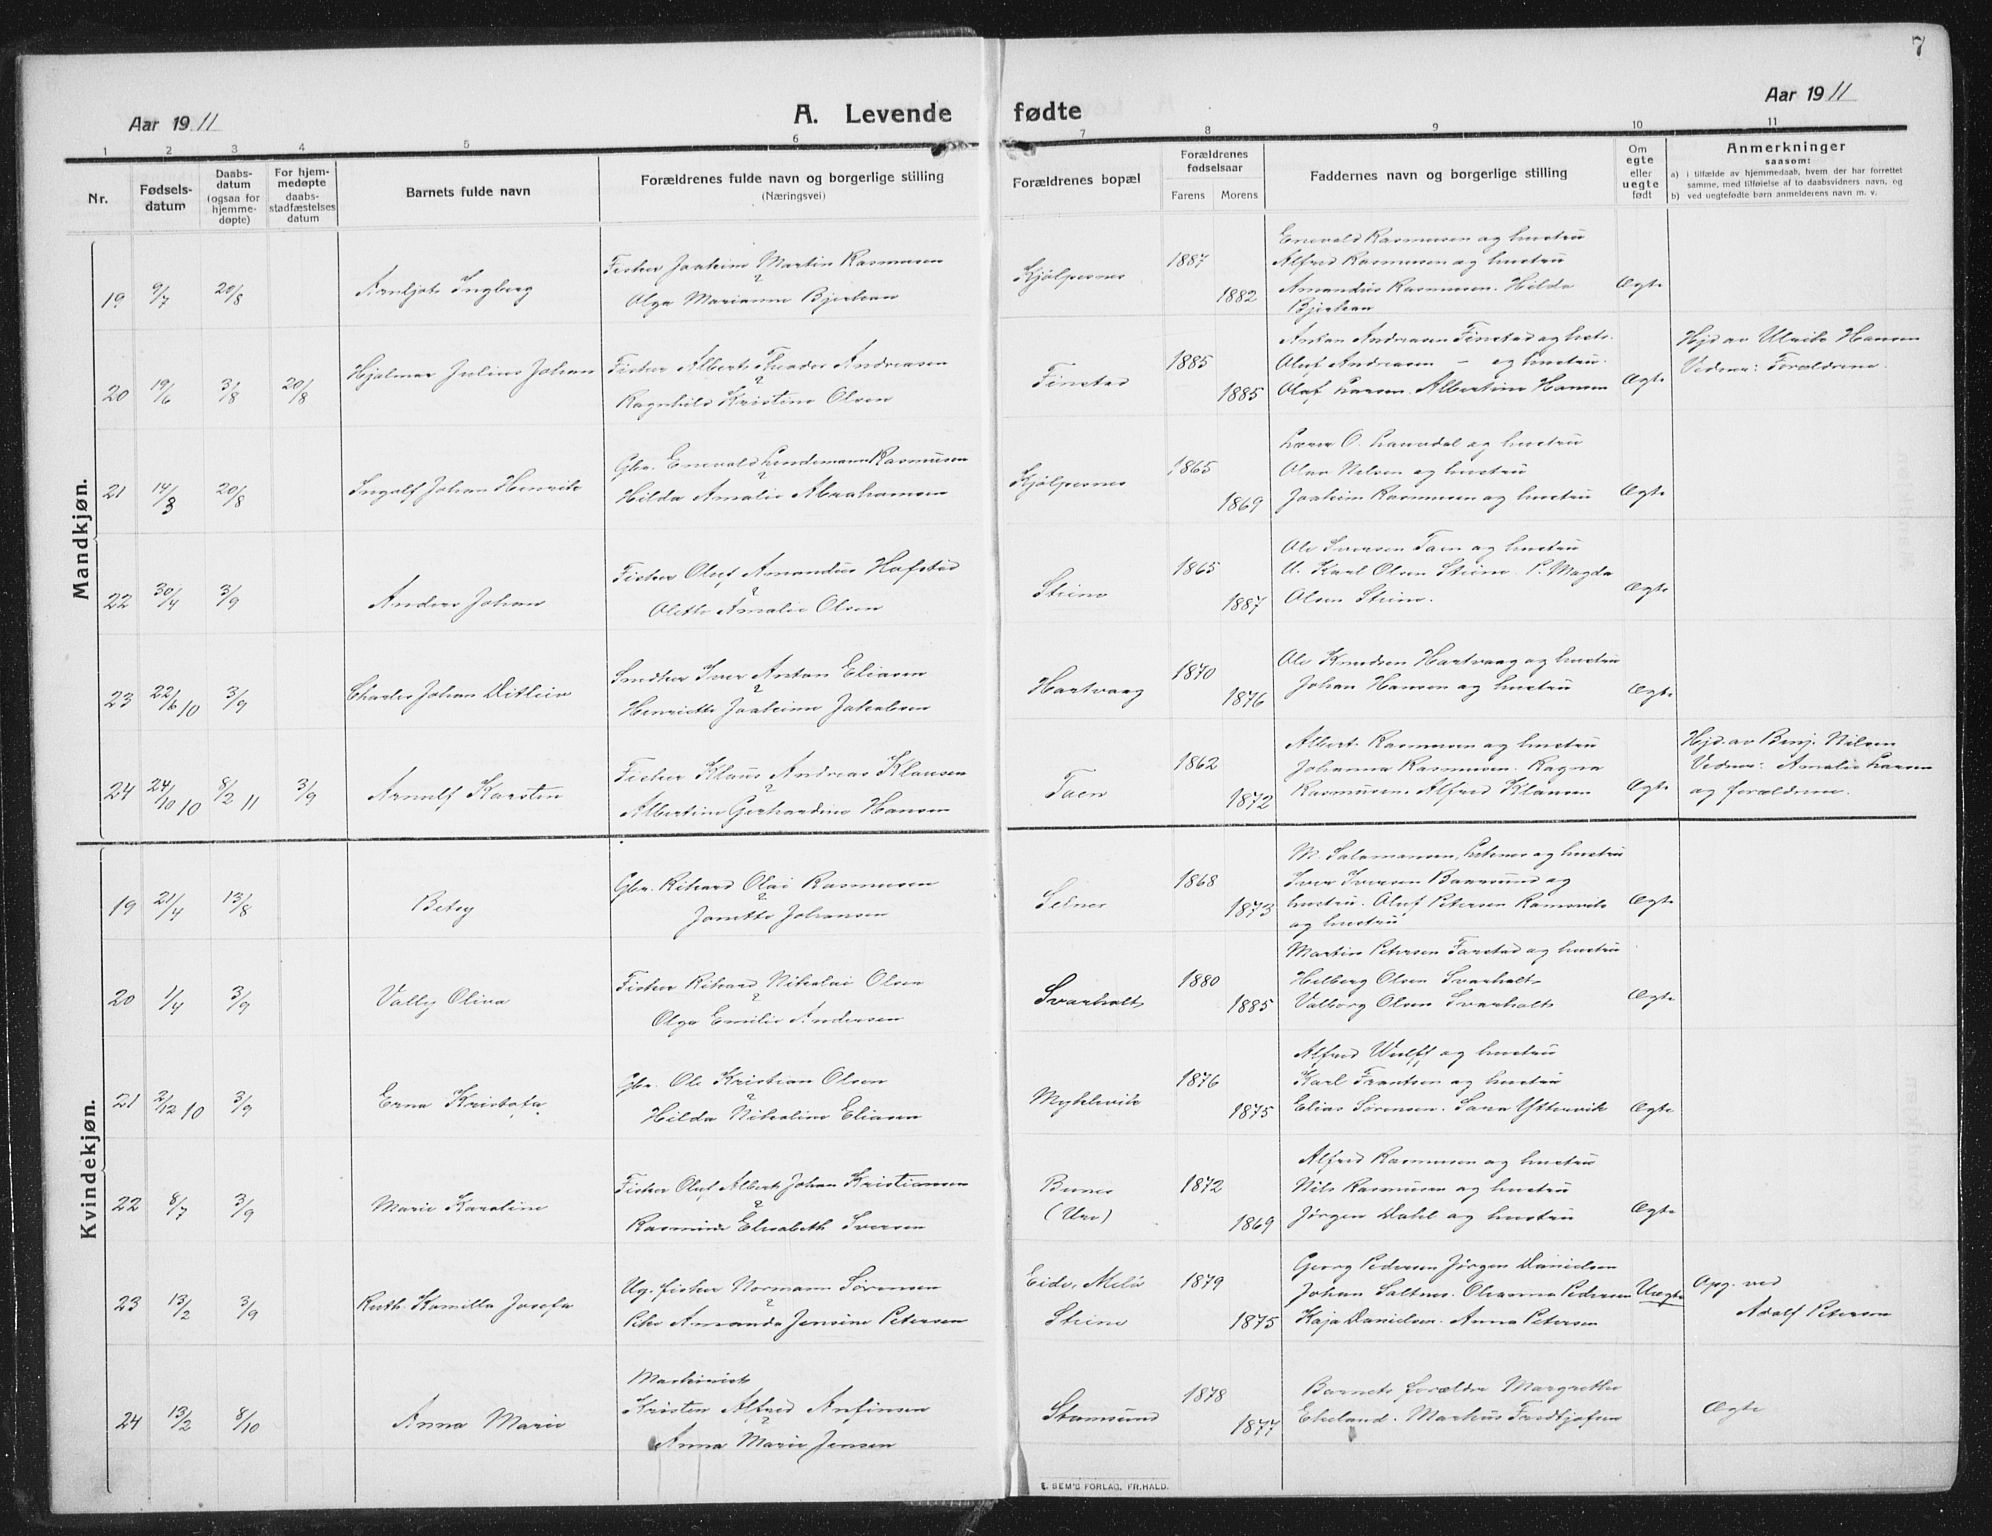 7
Aar 1911
A. Levende fødte
Aar 1911
1 2 3 4 5 6 7 8 9 10 11
Nr.
Fødsels-
datum
Daabs-
datum
(ogsaa for
hjemme-
døpte)
For hjem-
medøpte
daabs-
stadfæstelses
datum
Barnets fulde navn
Forældrenes fulde navn og borgerlige stilling
(Næringsvei)
Forældrenes bopæl
Forældrenes
fødselsaar
Farens Morens
Faddernes navn og borgerlige stilling
Om
egte
eller
uegte
født
Anmerkninger
saasom:
a) i tilfælde av hjemmedaab, hvem der har forrettet
samme, med tilføielse af to daabsvidners navn, og
b) ved uegtefødte børn anmelderens navn m. v.
Mandkjøn.
19 9/7 20/8 Arnljot Ingberg
Fisker Joakim Martin Rasmusen
Olga Marianne Bjerkan
Kjølpesnes 1887 1882
Enevald Rasmusen og hustru
Alfred Rasmusen og hustru
Amandus Rasmusen. Hilda
Bjerkan
Ægte
20 19/6 3/8 20/8 Hjalmar Julius Johan
Fisker Albert Theodor Andreasen
Ragnhild Kristine Olsen
Finstad 1885 1885
Anton Andreasen Finstad og hstr.
Oluf Andreasen – og hustru.
Olaf Larsen. Albertine Hansen
Ægte
Hjd. av Ulrik Hansen
Vidner: Forældrene.
21 14/3 20/8 Ingolf Johan Henrik
Gbr. Enevald Lindemann Rasmusen
Hilda Amalie Abrahamsen
Kjølpesnes 1865 1869
Lærer O. Lauvdal og hustru
Olav Nilsen og hustru
Joakim Rasmusen og hustru
Ægte
22 30/4 3/9 Anders Johan
Fisker Oluf Amandus Hofstad
Olette Amalie Olsen
Steine 1865 1887
Ole Iversen Taen og hustru
U. Karl Olsen Steine. P. Magda
Olsen Steine.
Ægte
23 22/6 10 3/9 Charles Johan Ditlein
Smeder Iver Anton Eliasen
Henriette Joakime Jakobsen
Hartvaag 1870 1876
Ole Knudsen Hartvaag og hustru
Johan Hansen og hustru
Ægte
24 24/10 10 8/2 11 3/9 Arnulf Karsten
Fisker Klaus Andreas Klausen
Albertine Gerhardine Hansen
Taen 1862 1872
Albert Rasmusen og hustru
Johanna Rasmusen. Ragna
Rasmusen. Alfred Klausen
Ægte
Hjd. av Benj. Nilsen
Vidner: Amalie Larsen
og forældrene.
Kvindekjøn.
19 21/4 13/8 Betsy
Gbr. Rikard Olai Rasmusen
Janette Johansen
1868 1873
M. Salamonsen, og hustru
Iver Iversen Baarsund og
hustru. Oluf Petersen Ramsvik
og hustru
Ægte
20 1/4 3/9 Vally Oliva
Fisker Rikard Nikolai Olsen
Olga Emilie Andersen
Svarholt 1880 1885
Martin Petersen Farstad og hustru
Helberg Olsen Svarholt
Valborg Olsen Svarholt
Ægte
21 2/12 10 3/9 Erna Kristofa
Gbr. Ole Kristian Olsen
Hilda Nikoline Eliasen
Myklevik 1876 1875
Alfred Wulff og hustru
Karl Frantsen og hustru
Elias Sørensen. Sara Yttervik
Ægte
22 8/7 3/9 Marie Karoline
Fisker Oluf Albert Johan Kristiansen
Rasminde Elisabeth Iversen
Bunes
(Ure)
1872 1869
Alfred Rasmusen og hustru
Nils Rasmusen og hustru
Jørgen Dahl og hustru
Ægte
23 13/2 3/9 Ruth Kamilla Josefa
Ug. fisker Normann Sørensen
Pike Amanda Jensine Petersen
Eide, Melø
Steine
1879 1875
Georg Pedersen Jørgen Danielsen
Johan Saltnes. Oleanna Pedersen
Kaja Danielsen. Anna Petersen
Uægte
Opg. ved
Adolf Petersen
24 13/2 8/10 Anna Marie
Maskinist
Kristen Alfred Anfinsen
Anna Marie Jensen
Stamsund 1878 1877
Barnets forældre Margrethe
Ekeland. Markus Fredtjofsen
Ægte
E. SEM'S FORLAG, FR.HALD.